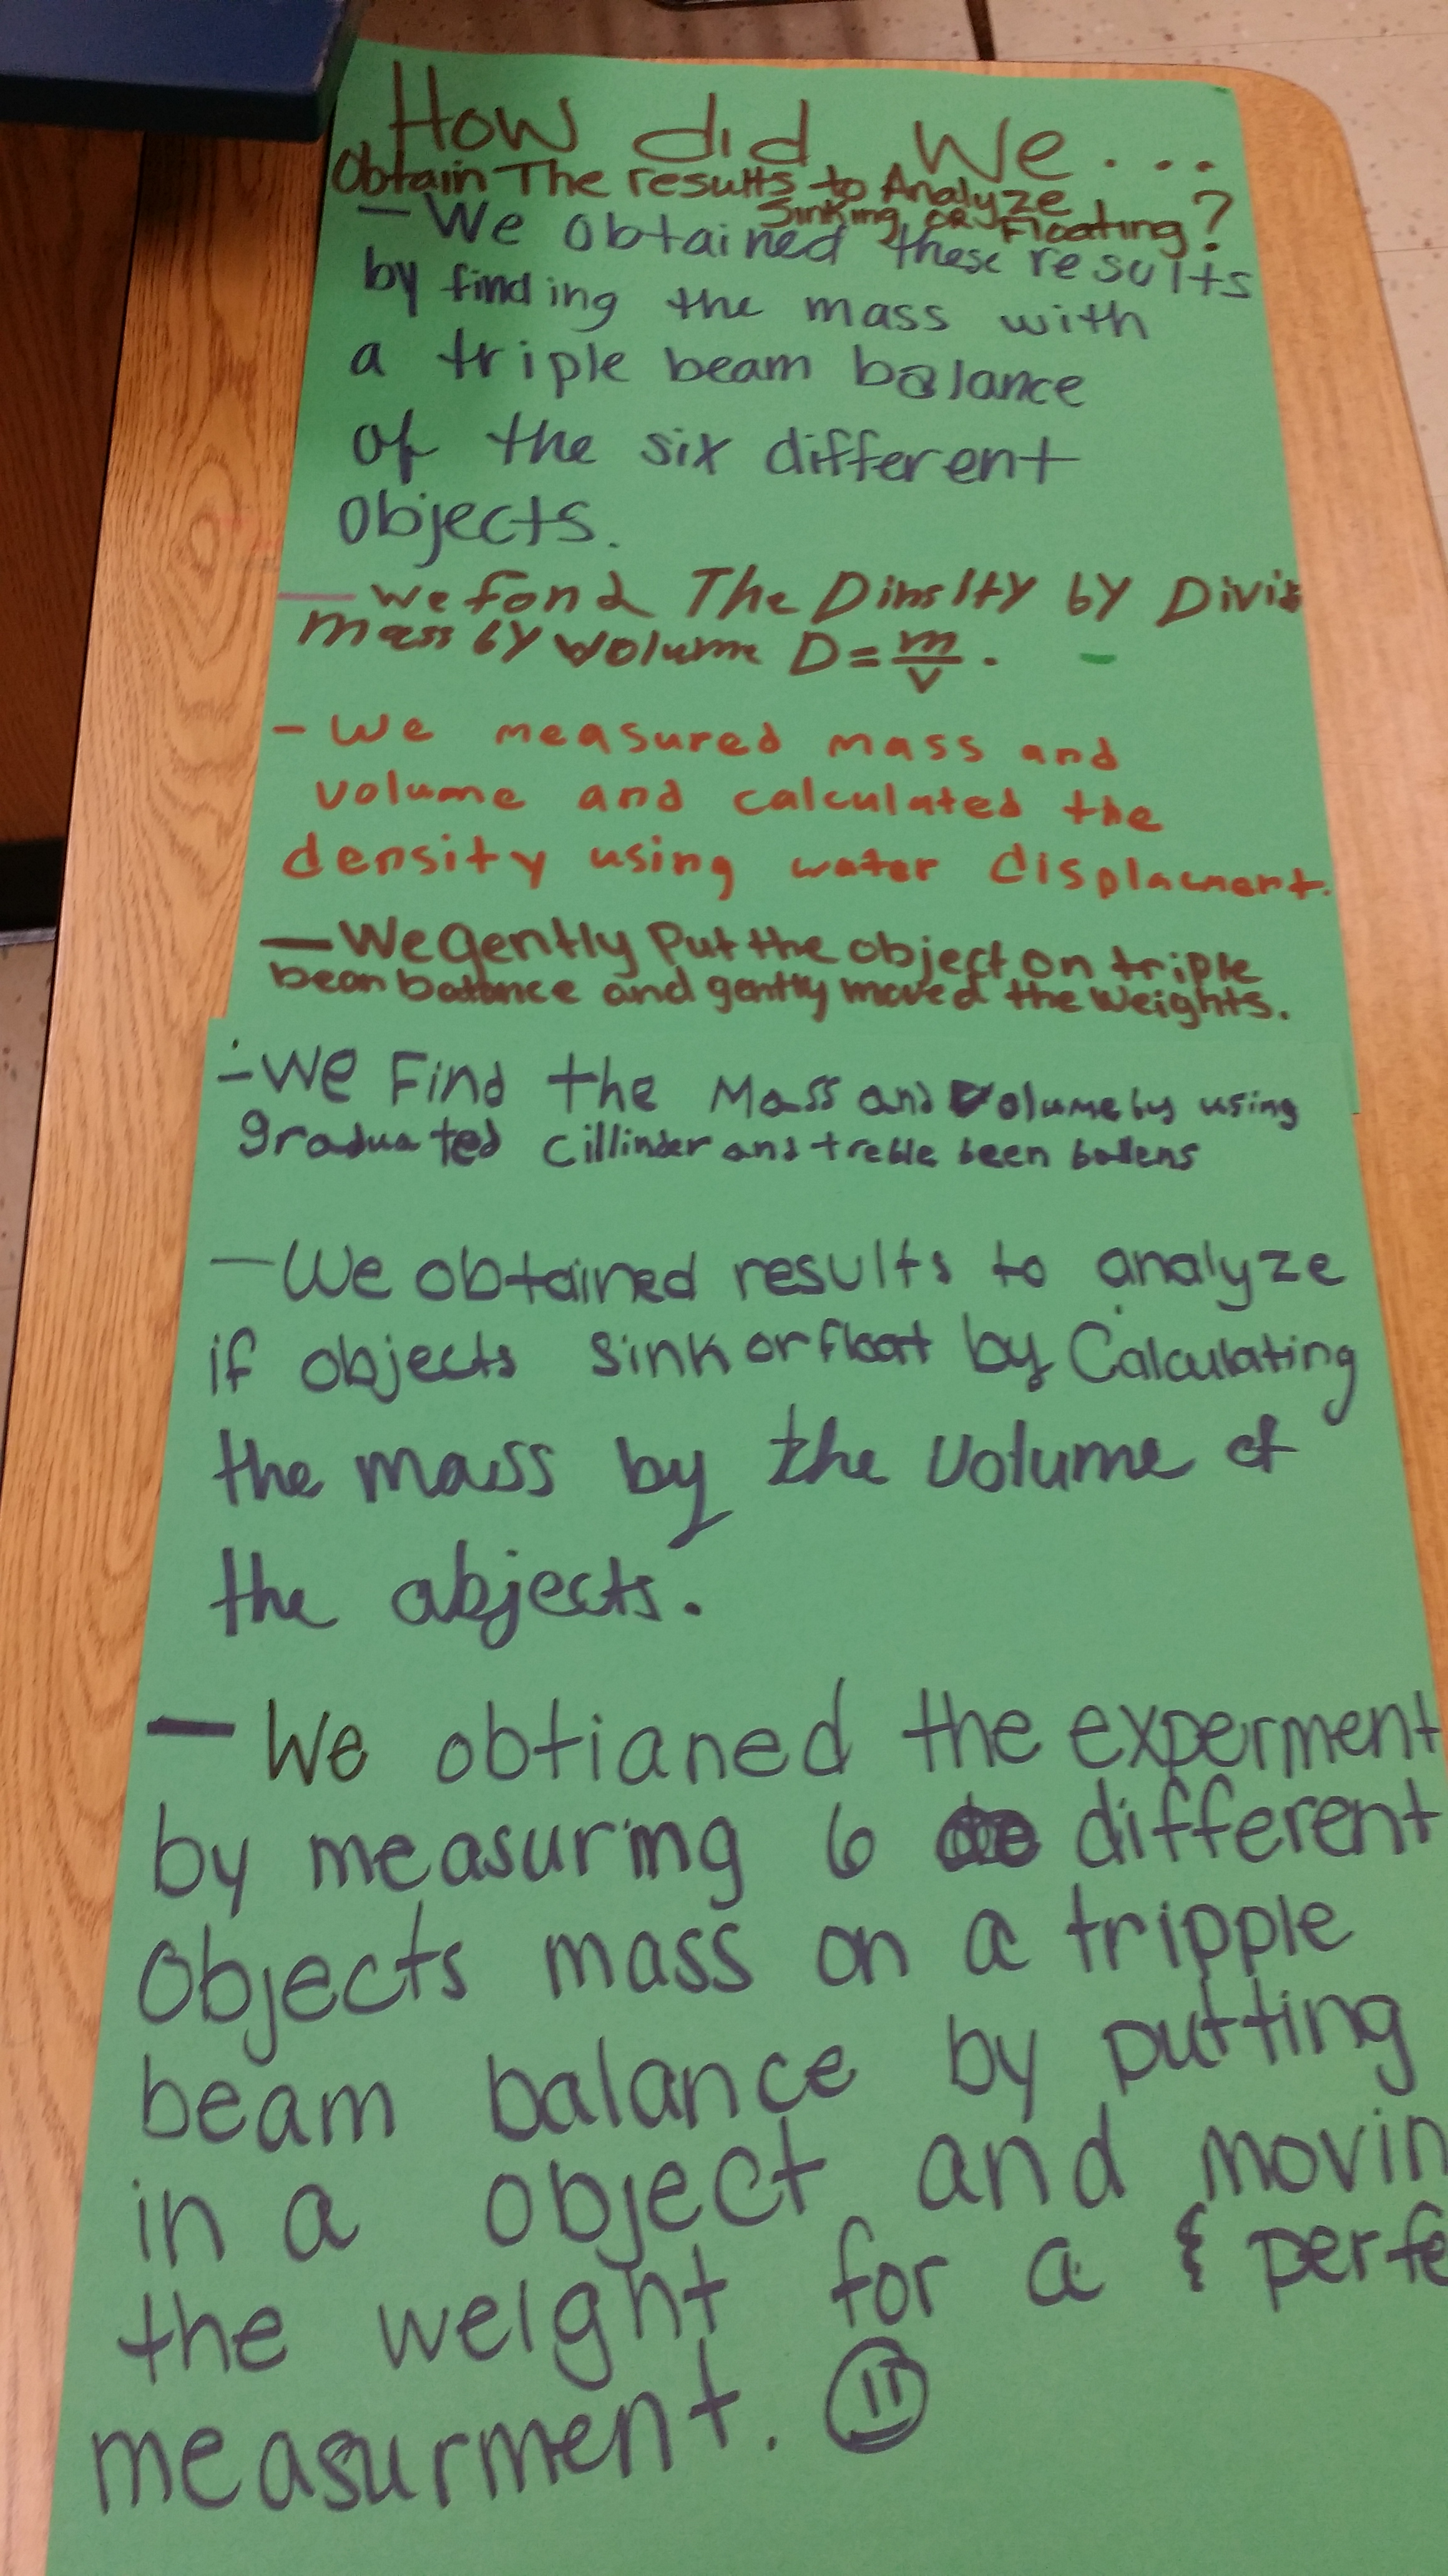 How did we...
Obtain The results to Analyze
Sinking or Floating?
- We obtained these results
by finding the mass with
a triple beam balance
of the six different
objects.
- we fond The Dinsity by Divid
mass by volume D = m/v.
- We measured mass and
volume and calculated the
density using water displacment.
- We gently put the object on triple
bean balance and gently moved the weights.
- We Find the Mass and volume by using
graduated cillinder and treble been ballens
- We obtained results to analyze
if objects sink or float by Calculating
the mass by the volume of
the abjects.
- We obtianed the experment
by measuring 6 different
objects mass on a tripple
beam balance by putting
in a object and movin
the weight for a perfe
measurment.